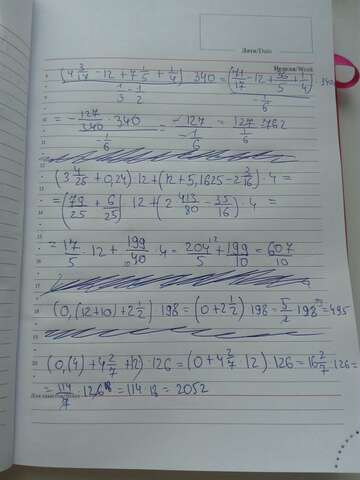 Дата/Date
Неделя/Week
(4 3/17 - 12 + 7 1/5 + 1/4) 340 / (1/3 - 1/2) = (71/17 - 12 + 36/5 + 1/4) 340 / -1/6
= -127/340 · 340 / -1/6 = -127 / -1/6 = 127 / 1/6 = 762
(3 4/25 + 0,24) 12 + (12 + 5,1625 - 2 3/16) · 4 =
= (79/25 + 6/25) 12 + (2 413/80 - 35/16) · 4 =
= 17/5 · 12 + 199/40 · 4 = 204/5 + 199/10 = 607/10
(0,(12+10) + 2 1/2) 198 = (0 + 2 1/2) 198 = 5/2 198 = 495
(0,(4) + 4 2/7 + 12) · 126 = (0 + 4 2/7 12) 126 = 16 2/7 · 126 =
= 114/7 · 126 18 = 114 · 18 = 2052